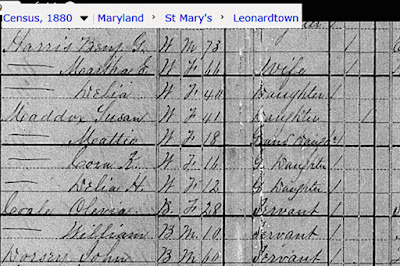 Census, 1880 Maryland St Mary's Leonardtown
Harris Benj. G. W M 73
— Martha E. W F 66 Wife /
— Delia W F 40 Daughter /
Maddox Susan W F 41 Daughter /
— Mattie W F 18 Grand Daugh /
— Cora K. W F 16 G Daughter /
— Delia H. W F 12 G Daughter /
Coale Olevia B F 28 Servant /
— William B M 10 Servant /
Dorsey John B M 60 Servant /